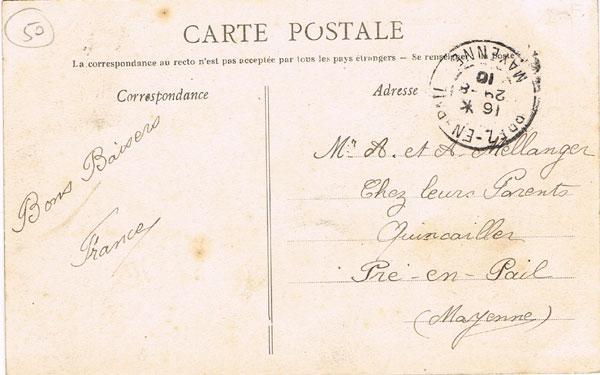 50
CARTE POSTALE
La correspondance au recto n'est pas acceptée par tous les pays étrangers — Se renseigner à la poste
Correspondance
Adresse
16 *
29 - 8
10
MAYENNE
Bons Baisers
France
Mrs A. et A. Mellanger
Chez leurs Parents
Quincailler
Pré-en-Pail
(Mayenne)